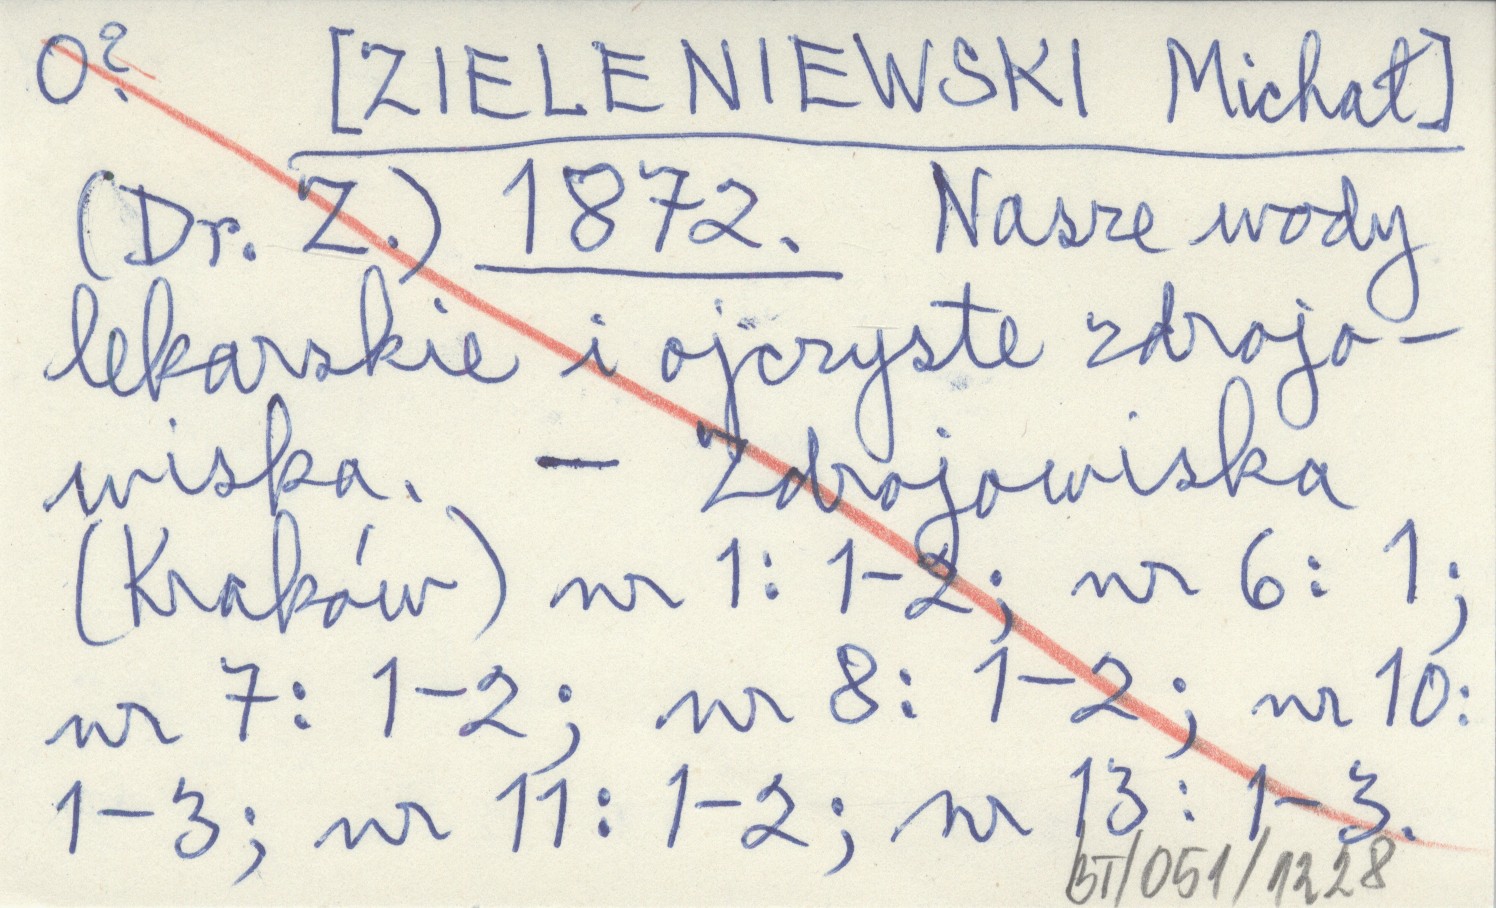 O? [ZIELENIEWSKI Michał]
(Dr. Z.) 1872. Nasze wody
lekarskie i ojczyste zdrojo-
wiska. - Zdrojowiska
(Kraków) nr 1: 1-2; nr 6: 1;
nr 7: 1-2; nr 8: 1-2; nr 10:
1-3; nr 11: 1-2; nr 13: 1-3.
BT/051/1228